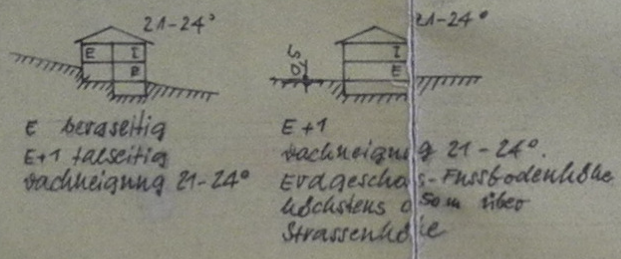 21-24°
E I
E
E bergseitig
E+1 talseitig
Dachneigung 21-24°
21-24°
I
E
0,5
E+1
Dachneigung 21-24°.
Erdgeschoss-Fussbodenhöhe
höchstens 0,50 m über
Strassenhöhe